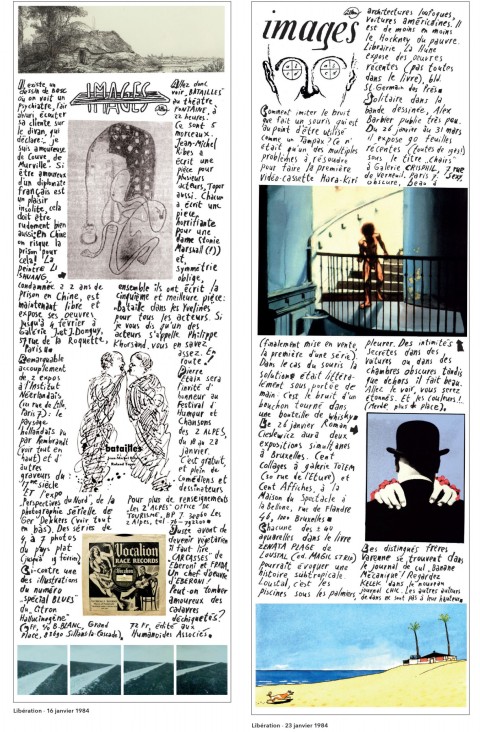 IMAGES
Il existe un
dessin de Bosc
où on voit un
Psychiatre, l'air
ahuri, écouter
sa cliente sur
le divan, qui
déclare: je
suis amoureuse
de Couve, de
Murville. Si
être amoureux
d'un diplomate
français est
un plaisir
insolite, cela
doit être
rudement bien
aussi: en Chine
on risque la
prison pour
cela! La
peintre LI
SHUANG,
condamnée à 2 ans de
prison en Chine, est
maintenant libre et
expose ses oeuvres
jusqu'à 4 février à
Galerie J. et J. Donguy,
57 rue de la Roquette,
Paris
Remarquable
accouplement
de 2 expos
à l'Institut
Néerlandais
(121 rue de Lille,
Paris 7): le
paysage
hollandais vu
par Rembrandt
(voir tout en
haut) et
d'autres
graveurs du
17ème siècle
ET l'expo
"Perspectives du Nord", de la
photographie sérielle de
Ger Dekkers (voir tout
en bas). Des séries de
4, à 7 photos
du pays plat
(jusqu'à février)
Ci-contre une
des illustrations
du numéro
"spécial BLUES"
du "Citron
Hallucinogène"
B. BLANC, Grand
Place, Sillans-la-Cascade).
Allez donc
voir, BATAILLES
au théâtre
FONTAINE, à
22 heures.
Ce sont 5
morceaux.
Jean-Michel
Ribes a
écrit une
pièce pour
plusieurs
acteurs, Topor
aussi. Chacun
a écrit une
pièce,
horrifiante
pour une
dame (Tonie
Marshall (!))
et,
symétrie
oblige,
ensemble ils ont écrit la
cinquième et meilleure pièce:
Bataille dans les Yvelines
pour tous les acteurs. Si
je vous dis qu'un des
acteurs s'appelle Philippe
Khorsand, vous en savez
assez. En
route!
Pierre
Étaix sera
l'invité d'
honneur au
Festival d'
Humour et
Chansons
des 2 ALPES,
du 18 au 28
janvier.
C'est gratuit,
et plein de
comédiens et
dessinateurs.
batailles
Roland Topor
Pour plus de renseignements
Les 2 ALPES OFFICE DE
TOURISME, BP 7. 38860 Les
2 Alpes, tel.
Juste avant de
devenir végétarien
il faut lire
"CARCASSES" de
EBERONI et FRIDA.
Un chef d'oeuvre
d'EBERONI!
Peut-on tomber
amoureux des
cadavres
déchiquetés?
72 Fr, édité aux
Humanoïdes Associés.
Vocalion
RACE RECORDS
Vocalion
Libération - 16 janvier 1984
images
Comment imiter le bruit
que fait un souris qui est
au point d'être utilisé
comme un Tampax? Ce n'
était qu'un des multiples
problèmes à résoudre
pour faire la première
Vidéo-cassette Hara-Kiri
architectures loufoques,
voitures américaines. Il
est de moins en moins
le Hockney du pauvre.
Librairie La Hune
expose des oeuvres
récentes (pas toutes
dans le livre), bld.
St. Germain des Prés
Solitaire dans la
bande dessinée, Alex
Barbier publie très peu.
Du 26 janvier au 31 mars
il expose 90 feuilles
récentes (toutes de 1983)
sous le titre "Chairs"
à Galerie CRISPHIL, 7 rue
de Verneuil, Paris 7. Sexy,
obscure, beau à
(finalement mise en vente,
la première d'une série).
Dans le cas du souris la
solution était littéra-
lement sous portée de
main: c'est le bruit d'un
bouchon tourné dans
une bouteille de whisky
Le 26 janvier Roman
Cieslewicz aura deux
expositions simultanées
à Bruxelles. Cent
collages à galerie TOTEM
(50 rue de l'Étuve) et
Cent Affiches, à la
Maison du Spectacle à
la Bellone, rue de Flandre
46, 1000 Bruxelles
Chacune des
aquarelles dans le livre
ZENATA PLAGE de
LOUSTAL (ed. MAGIC STRIP)
pourrait évoquer une
histoire subtropicale.
Loustal, c'est les
piscines sous les palmiers,
pleurer. Des intimités
secrètes dans des
voitures ou dans des
chambres obscures tandis
que dehors il fait beau.
Allez le voir, vous serez
étonné. Et les couleurs!..
(Merde plus de place).
Les distingués frères
Varenne se trouvent dans
le journal de cul, Banane
Mécanique! Regardez
KELEK dans le nouveau
journal CHIC. Les autres auteurs
de dans ne sont pas à leur hauteur.
Libération - 23 janvier 1984